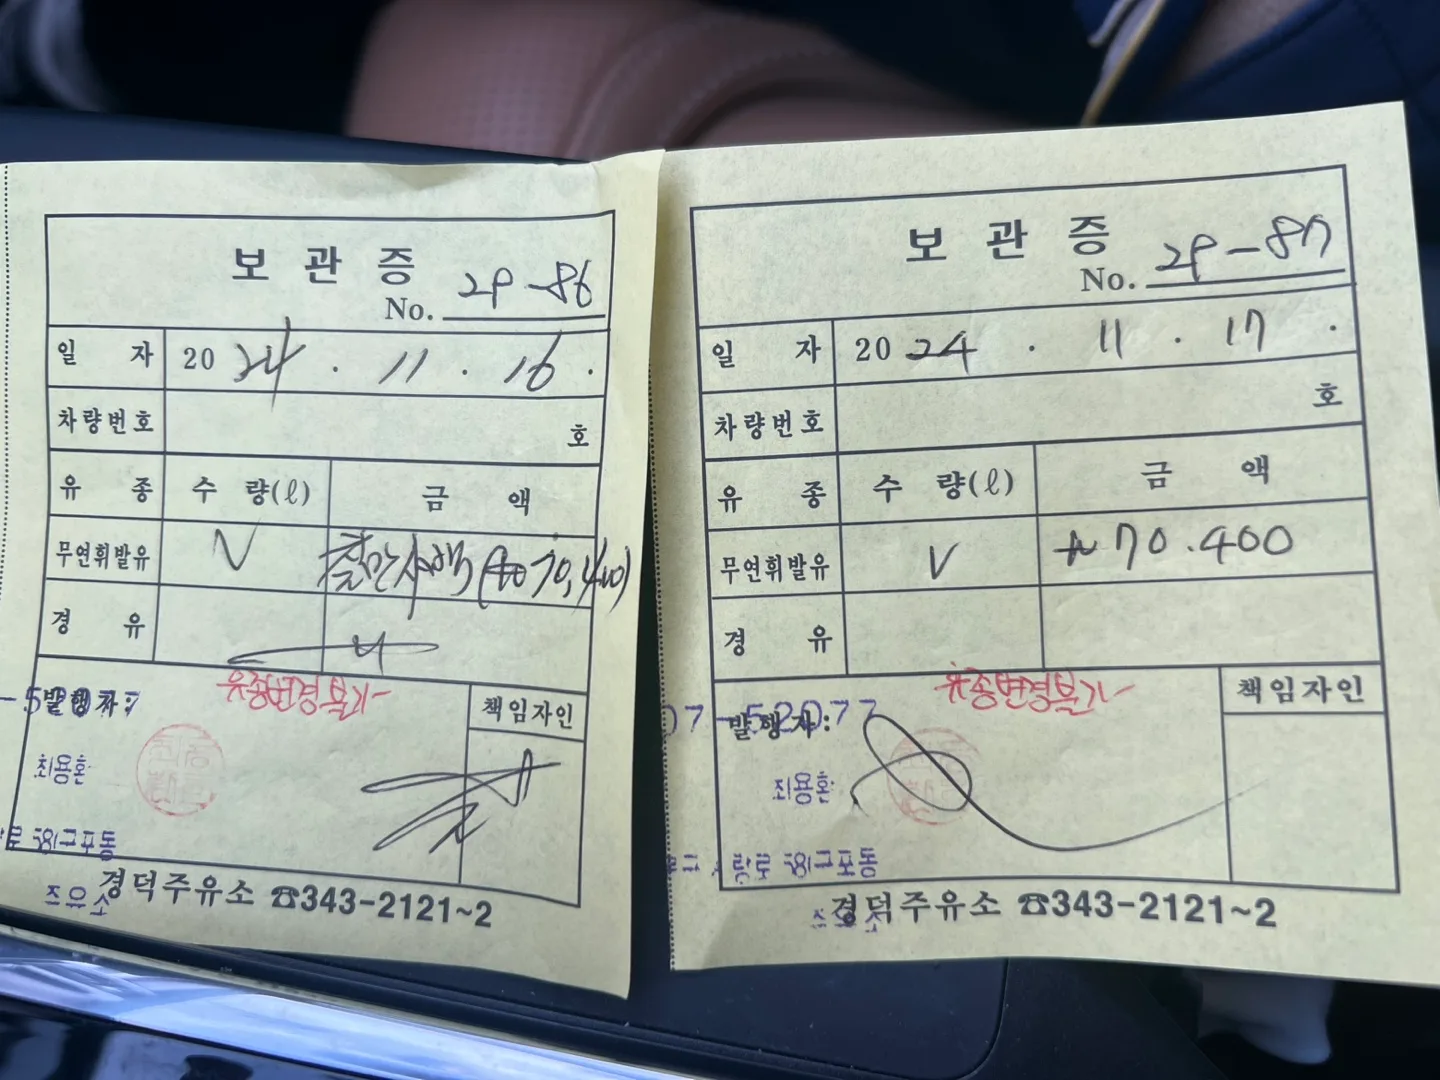 보 관 증
No. 29-86
일 자 2024 . 11 . 16 .
차량번호 호
유 종 수 량(ℓ) 금 액
무연휘발유 V 칠만사백(₩70,400)
경 유
유종변경불가
발행자:
책임자인
최용환
경덕주유소 ☎343-2121~2
보 관 증
No. 29-87
일 자 2024 . 11 . 17 .
차량번호 호
유 종 수 량(ℓ) 금 액
무연휘발유 V ₩70.400
경 유
유종변경불가
07-52077
발행자:
책임자인
최용환
경덕주유소 ☎343-2121~2